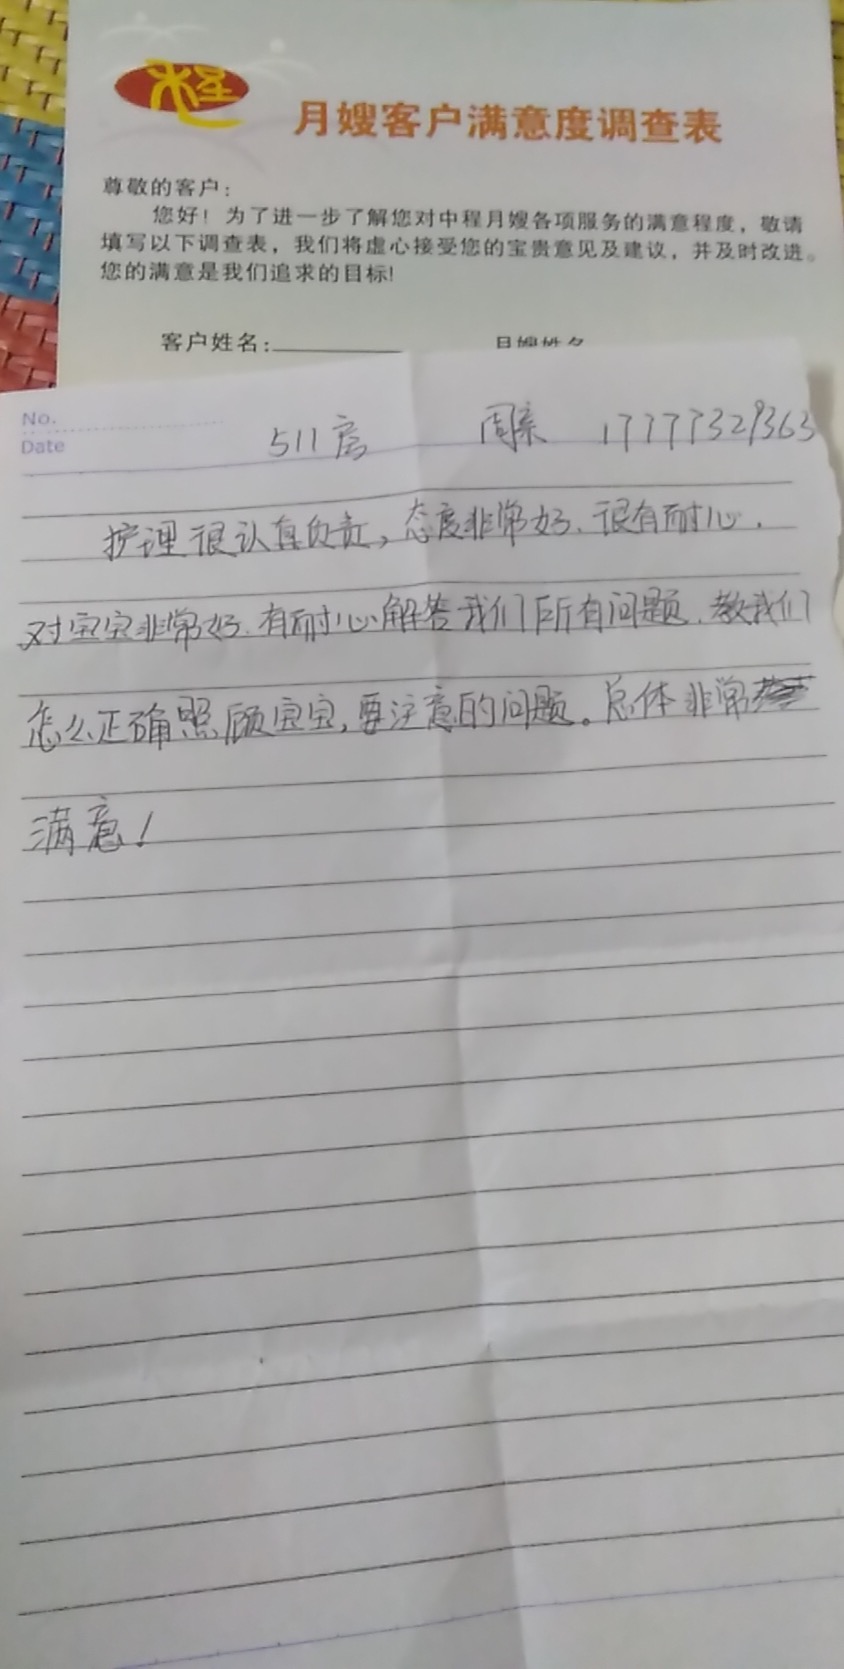 月嫂客户满意度调查表
尊敬的客户:
您好！为了进一步了解您对中程月嫂各项服务的满意程度，敬请
填写以下调查表，我们将虚心接受您的宝贵意见及建议，并及时改进。
您的满意是我们追求的目标!
客户姓名: 月嫂姓名
No.
Date
511房 周亲 17777329363
护理很认真负责，态度非常好、很有耐心．
对宝宝非常好．有耐心解答我们所有问题．教我们
怎么正确照顾宝宝，要注意的问题。总体非常
满意！